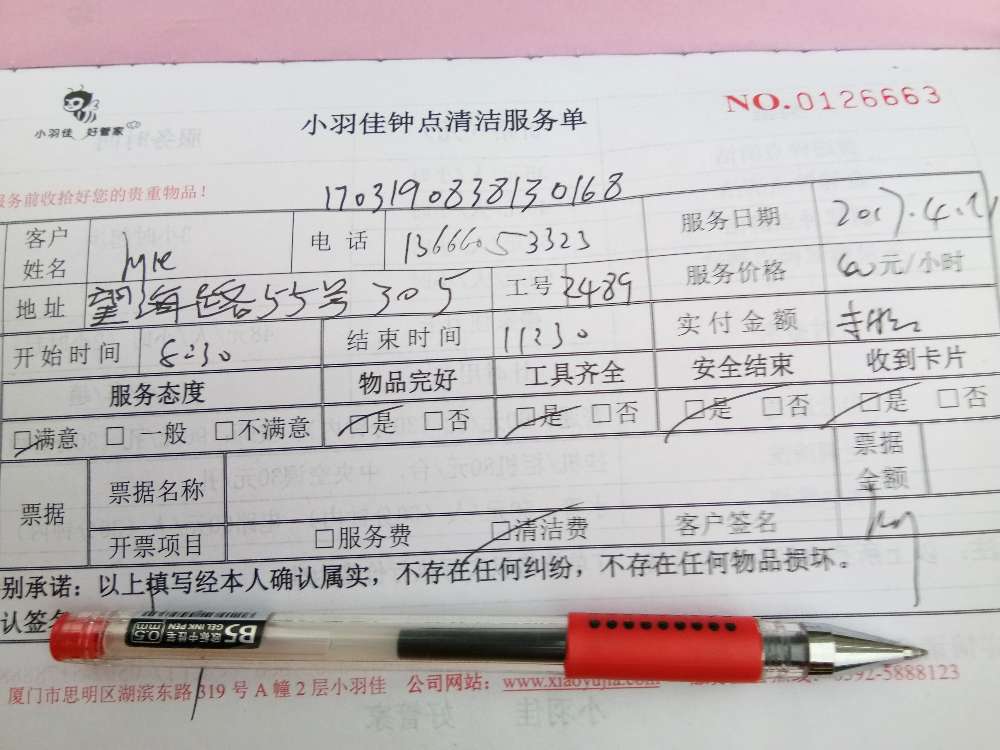 小羽佳 好管家
小羽佳钟点清洁服务单
NO.0126663
服务前收拾好您的贵重物品！
1703190838130168
客户姓名 电话 13666053323 服务日期 2017.4.
地址 望海路55号305 工号 2489 服务价格 元/小时
开始时间 8:30 结束时间 11:30 实付金额
服务态度 物品完好 工具齐全 安全结束 收到卡片
□满意 □一般 □不满意 □是 □否 □是 □否 □是 □否 □是 □否
票据 票据名称 票据金额
开票项目 □服务费 □清洁费 客户签名
别承诺：以上填写经本人确认属实，不存在任何纠纷，不存在任何物品损坏。
认签名
B5 GEL INK PEN 0.5mm
厦门市思明区湖滨东路319号A幢2层小羽佳 公司网站：www.xiaoyujia.com 0592-5888123